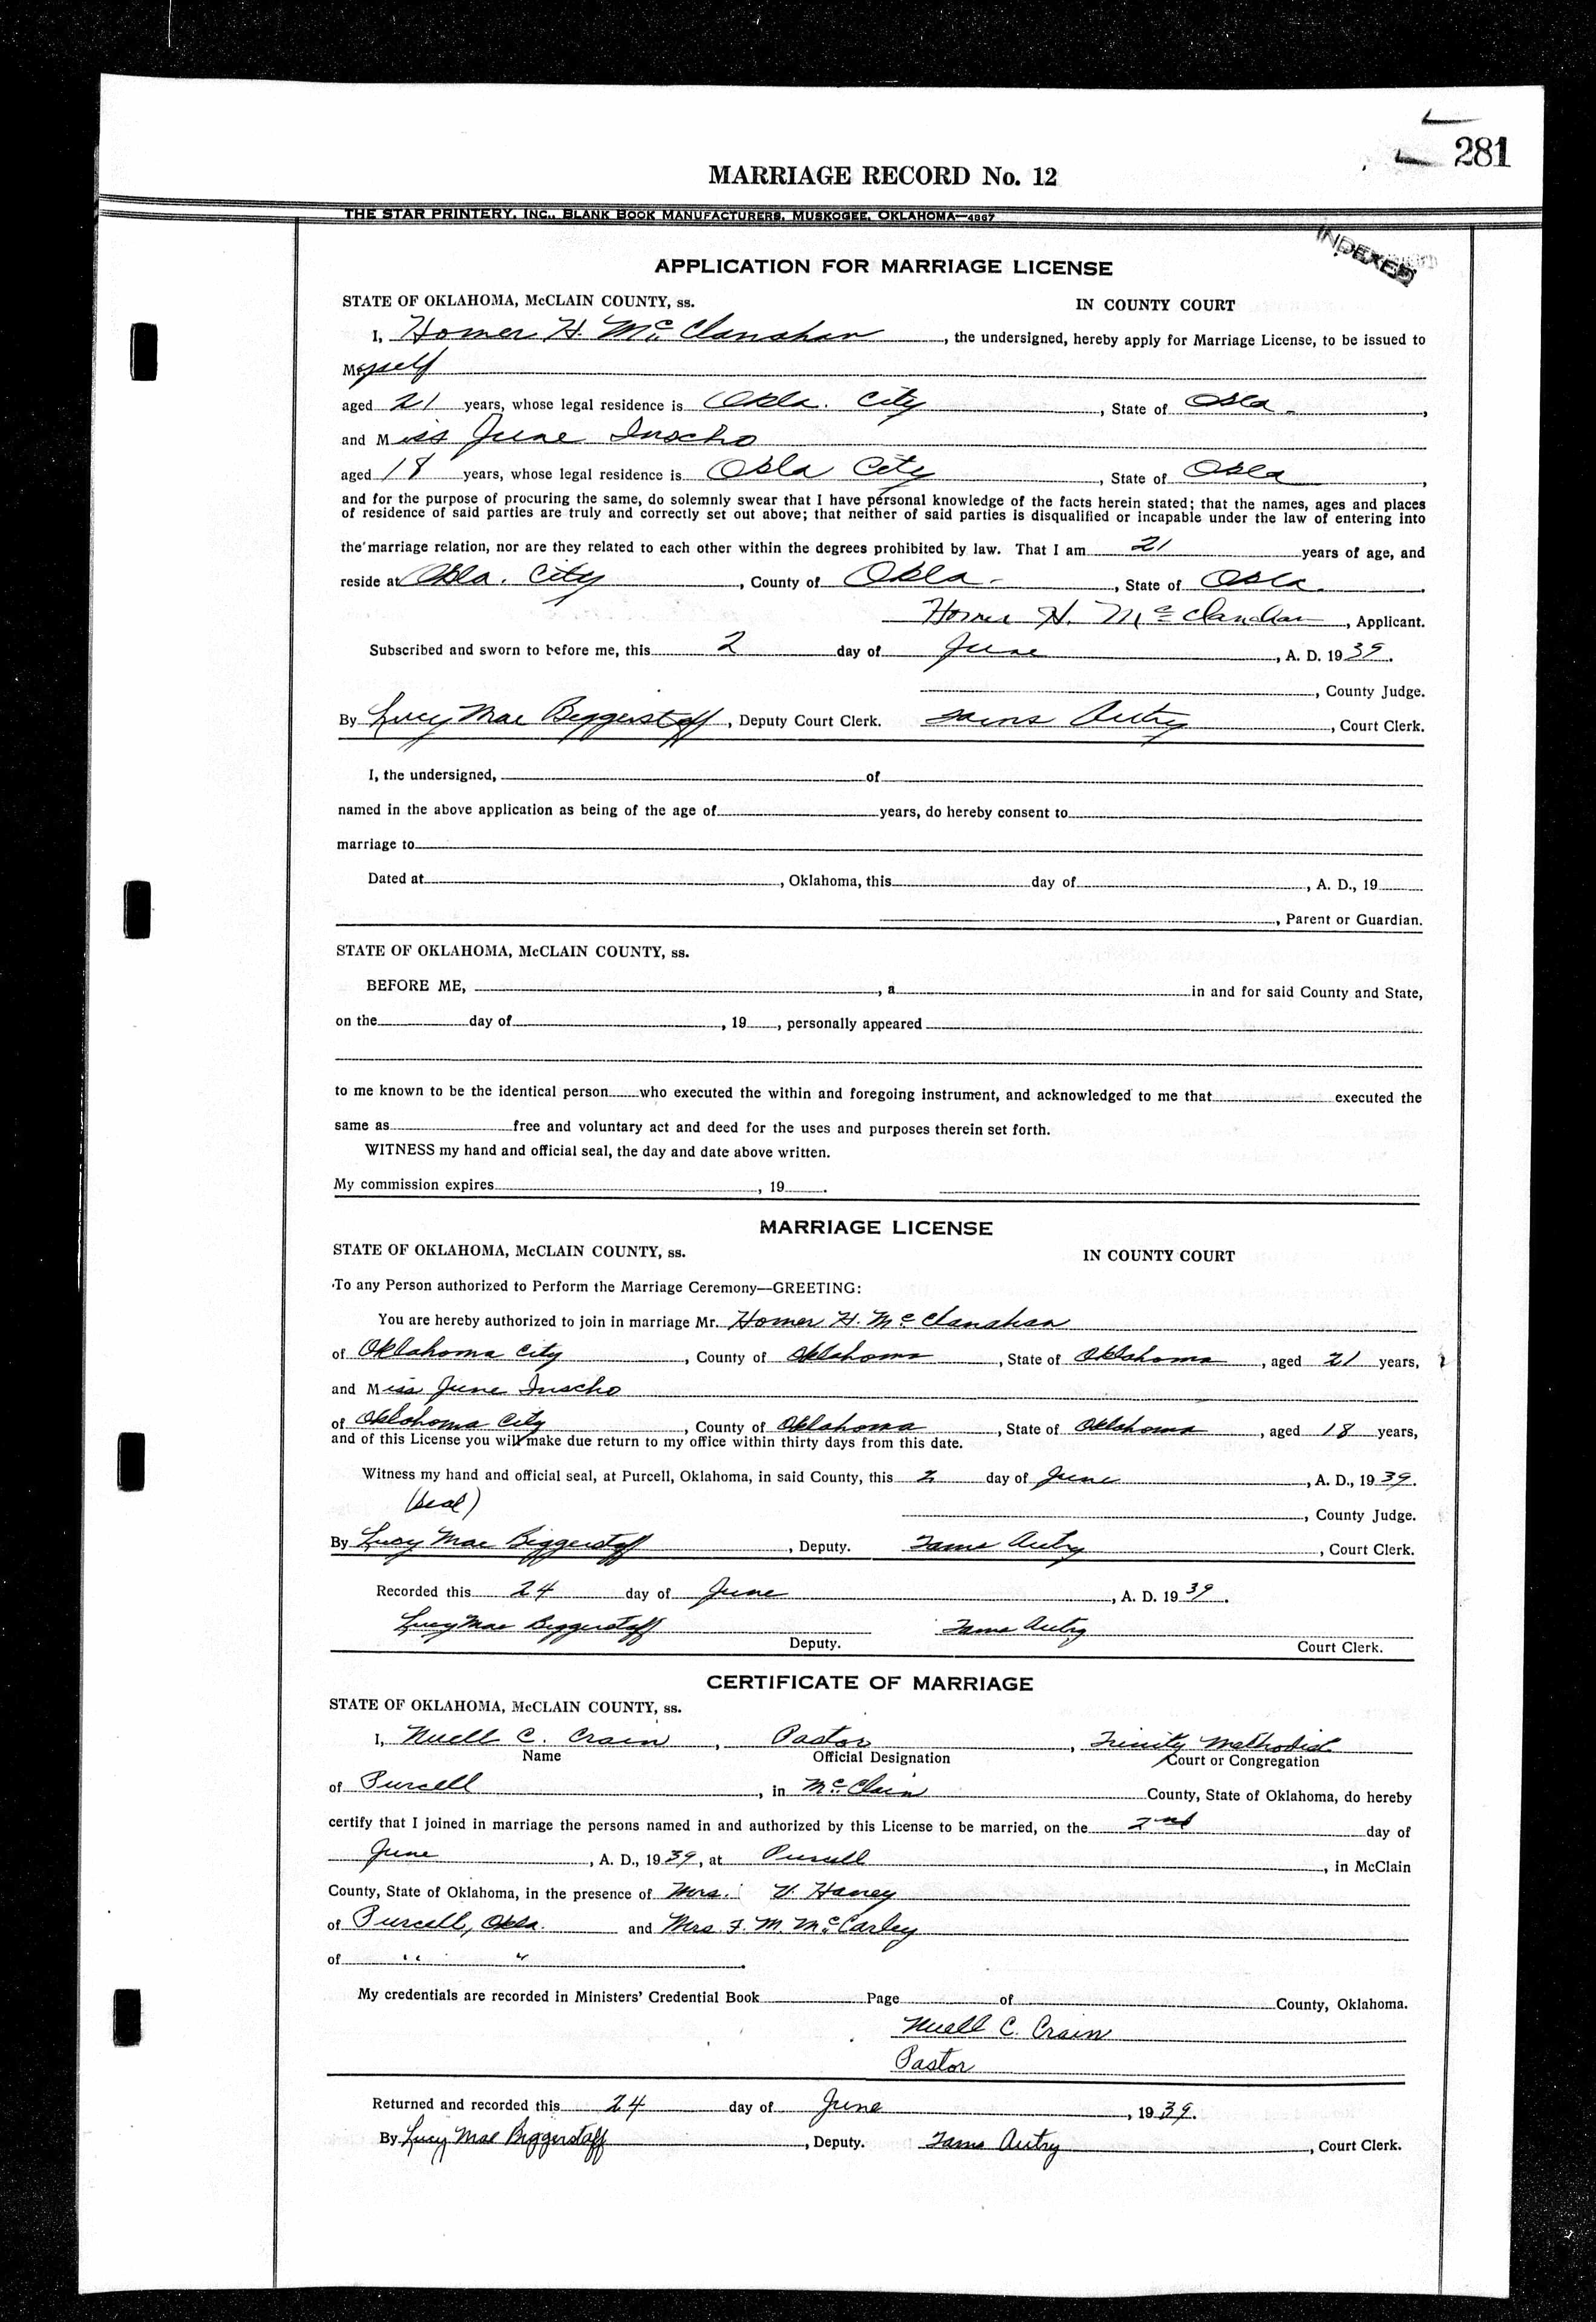 281
MARRIAGE RECORD No. 12
THE STAR PRINTERY, INC., BLANK BOOK MANUFACTURERS, MUSKOGEE, OKLAHOMA—4867
INDEXED
APPLICATION FOR MARRIAGE LICENSE
STATE OF OKLAHOMA, McCLAIN COUNTY, ss. IN COUNTY COURT
I, Homer H. McClanahan, the undersigned, hereby apply for Marriage License, to be issued to
Myself
aged 21 years, whose legal residence is Okla. City, State of Okla.,
and Miss June Inscho
aged 18 years, whose legal residence is Okla City, State of Okla,
and for the purpose of procuring the same, do solemnly swear that I have personal knowledge of the facts herein stated; that the names, ages and places
of residence of said parties are truly and correctly set out above; that neither of said parties is disqualified or incapable under the law of entering into
the marriage relation, nor are they related to each other within the degrees prohibited by law. That I am 21 years of age, and
reside at Okla. City, County of Okla., State of Okla.
Homer H. McClanahan, Applicant.
Subscribed and sworn to before me, this 2 day of June, A. D. 1939.
, County Judge.
By Lucy Mae Biggerstaff, Deputy Court Clerk. Autry, Court Clerk.
I, the undersigned, of
named in the above application as being of the age of years, do hereby consent to
marriage to
Dated at , Oklahoma, this day of , A. D., 19
, Parent or Guardian.
STATE OF OKLAHOMA, McCLAIN COUNTY, ss.
BEFORE ME, , a in and for said County and State,
on the day of , 19 , personally appeared
to me known to be the identical person who executed the within and foregoing instrument, and acknowledged to me that executed the
same as free and voluntary act and deed for the uses and purposes therein set forth.
WITNESS my hand and official seal, the day and date above written.
My commission expires , 19 .
MARRIAGE LICENSE
STATE OF OKLAHOMA, McCLAIN COUNTY, ss. IN COUNTY COURT
To any Person authorized to Perform the Marriage Ceremony—GREETING:
You are hereby authorized to join in marriage Mr. Homer H. McClanahan
of Oklahoma City, County of Oklahoma, State of Oklahoma, aged 21 years,
and Miss June Inscho
of Oklahoma City, County of Oklahoma, State of Oklahoma, aged 18 years,
and of this License you will make due return to my office within thirty days from this date.
Witness my hand and official seal, at Purcell, Oklahoma, in said County, this 2 day of June, A. D., 1939.
(Seal) , County Judge.
By Lucy Mae Biggerstaff, Deputy. Autry, Court Clerk.
Recorded this 24 day of June, A. D. 1939.
Lucy Mae Biggerstaff Autry
Deputy. Court Clerk.
CERTIFICATE OF MARRIAGE
STATE OF OKLAHOMA, McCLAIN COUNTY, ss.
I, Nuell C. Crain, Pastor, Trinity Methodist
Name Official Designation Court or Congregation
of Purcell, in McClain County, State of Oklahoma, do hereby
certify that I joined in marriage the persons named in and authorized by this License to be married, on the 2nd day of
June, A. D., 1939, at Purcell, in McClain
County, State of Oklahoma, in the presence of Mrs. V. Haney
of Purcell, Okla. and Mrs. F. M. McCarley
of " "
My credentials are recorded in Ministers' Credential Book Page of County, Oklahoma.
Nuell C. Crain
Pastor
Returned and recorded this 24 day of June, 1939.
By Lucy Mae Biggerstaff, Deputy. Autry, Court Clerk.